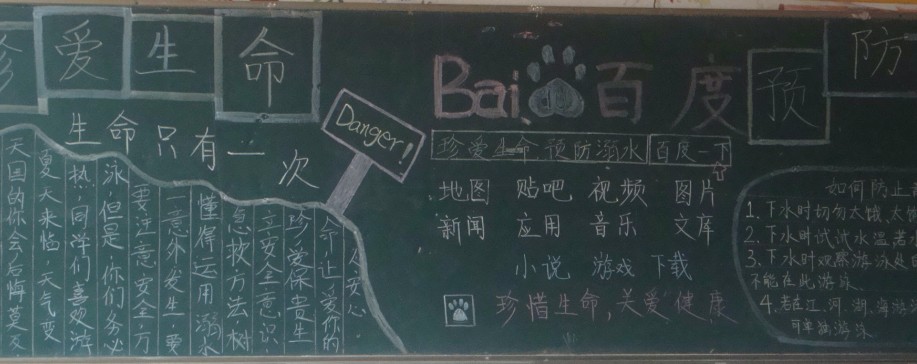 珍爱生命
预防
生命只有一次
Danger!
Bai百度
珍爱生命,预防溺水 百度一下
地图 贴吧 视频 图片
新闻 应用 音乐 文库
小说 游戏 下载
珍惜生命,关爱健康
夏天来临,天气变
热,同学们喜欢游
泳,但是,你们务必
要注意安全,万
一意外发生,要
懂得运用溺水
急救方法,树
立安全意识
珍爱保贵生
命,让爱你的
天国的你会后悔莫及
如何防止
1.下水时切勿太饿、太饱
2.下水时试试水温,若
3.下水时观察游泳处
不能在此游泳.
4.若在江、河、湖、海游泳
可单独游泳